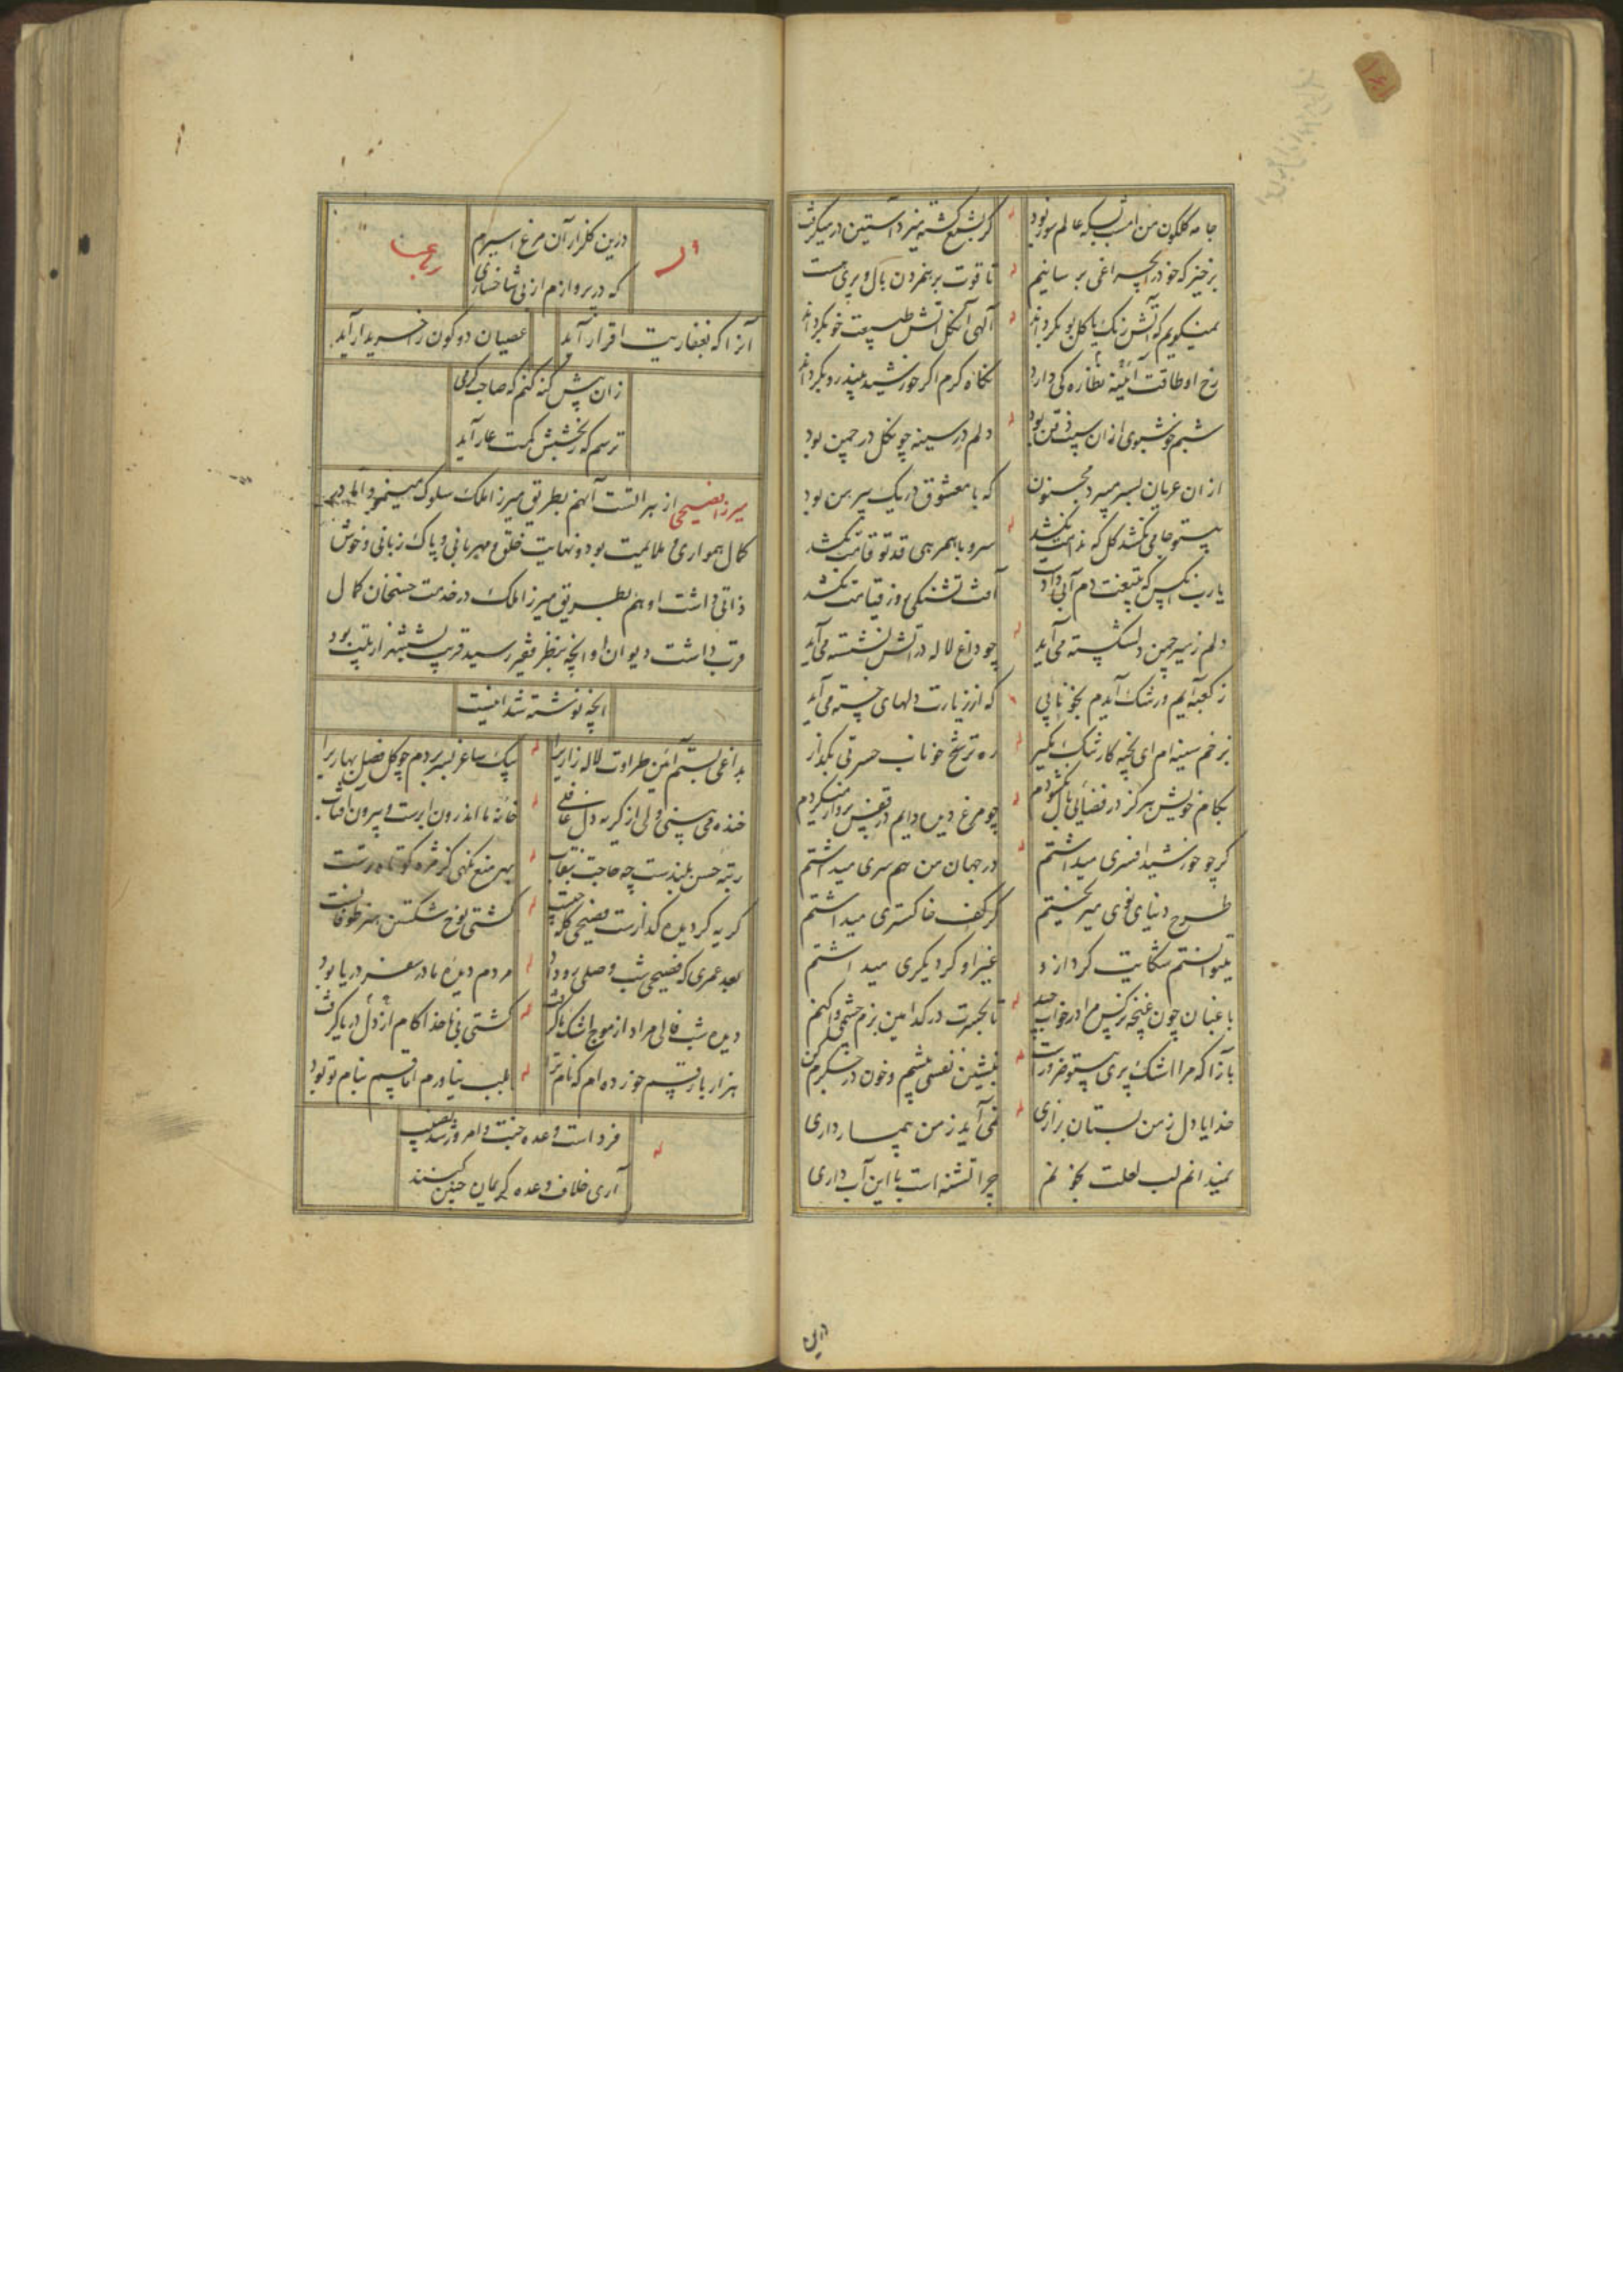 جامه گلگون من امشب بسکه عالم سوز بود گر بشمع کشته میزد آستین در میگرفت
برخیز که خود را بچراغی برسانیم تا قوت برهمزدن بال و پری هست
نمیگویم که آتش رنگ یا گل بو بگرداند الهی آن گل آتش طبیعت خو بگرداند
رخ او طاقت نظاره کی دارد نگاه گرم اگر خورشید بیند رو بگرداند
شبم خوشبوی از ان سیب ذقن بود دلم در سینه چو گل در چمن بود
از ان عریان بسر میبرد مجنون که با معشوق در یک پیرهن بود
بیتو جامی نکشد گل که ندامت نکشد سرو با همرهی قد تو قامت نکشد
یا رب آنکس که بتیغت دم آبی داد آفت تشنگی روز قیامت نکشد
دلم ز سیر چمن دلشکسته می آید چو داغ لاله در آتش نشسته می آید
ز کعبه آیم و رشک آیدم بخونابی که از زیارت دلهای خسته می آید
ز زخم سینه ام ای بخیه کار تنگ مگیر ره ترشح خوناب حسرتی بگذار
بکام خویش هرگز در فضائی بال نگشودم چو مرغ دیده دایم در قفس پرواز میکردم
گر چو خورشید افسری میداشتم در جهان من هم سری میداشتم
طرح دنیای نوی میریختم گر کف خاکستری میداشتم
میتوانستم شکایت کرد ازو غیر او گر دیگری میداشتم
باغبان چون غنچه نرگس مرا در خواب چید تا بحسرت در کدامین بزم چشمی وا کنم
بازآ که مرا اشک پری بیتو ضرورست بنشین نفسی پیشم و خون در جگرم کن
خدایا دل ز من بستان بزاری نمی آید ز من بیمارداری
نمیدانم لب لعلت بخونم چرا تشنه است با این آبداری
درین
وله
درین گلزار آن مرغ اسیرم
که در پروازم از بی شاخساری
رباعیات
آنرا که بغفاریت اقرار آید عصیان دو کون را خریدار آید
زان پیش گنه کنم که صاحب کرمی
ترسم که ز بخشش کمت عار آید
میرزا فصیحی از هراتست آنهم بطریق میرزا ملک سلوک مینمود اما در
کمال همواری و ملایمت بود و نهایت خلق و مهربانی و پاک زبانی و خوش
ذاتی داشت او هم بطریق میرزا ملک در خدمت حسنخان کمال
قرب داشت دیوان او آنچه بنظر فقیر رسید قریب بشش هزار بیت بود
آنچه نوشته شد اینست
بداغی بستم آئین طراوت لاله زاری را بیک ساغر بسر بردم چو گل فصل بهاری را
خنده می بینی ولی از گریه دل غافلی خانه ما اندرون ابرست و بیرون آفتاب
رتبه حسن بلندست چه حاجت بنقاب بهر منع نگهی کز مژه کوتاه ترست
گریه گر دیده گدازست فصیحی گله چیست کشتی نوح شکستن هنر طوفانست
بعد عمری که فصیحی شب وصلی رو داد مردم دیده ما در سفر دریا بود
دیده شب فالی مراد از موج اشک ما گرفت کشتی بی ناخدا کام از دل دریا گرفت
هزار بار قسم خورده ام که نام ترا بلب نیاورم اما قسم بنام تو بود
فرداست وعده جنت و امروز شد نصیب
آری خلاف وعده کریمان چنین کنند